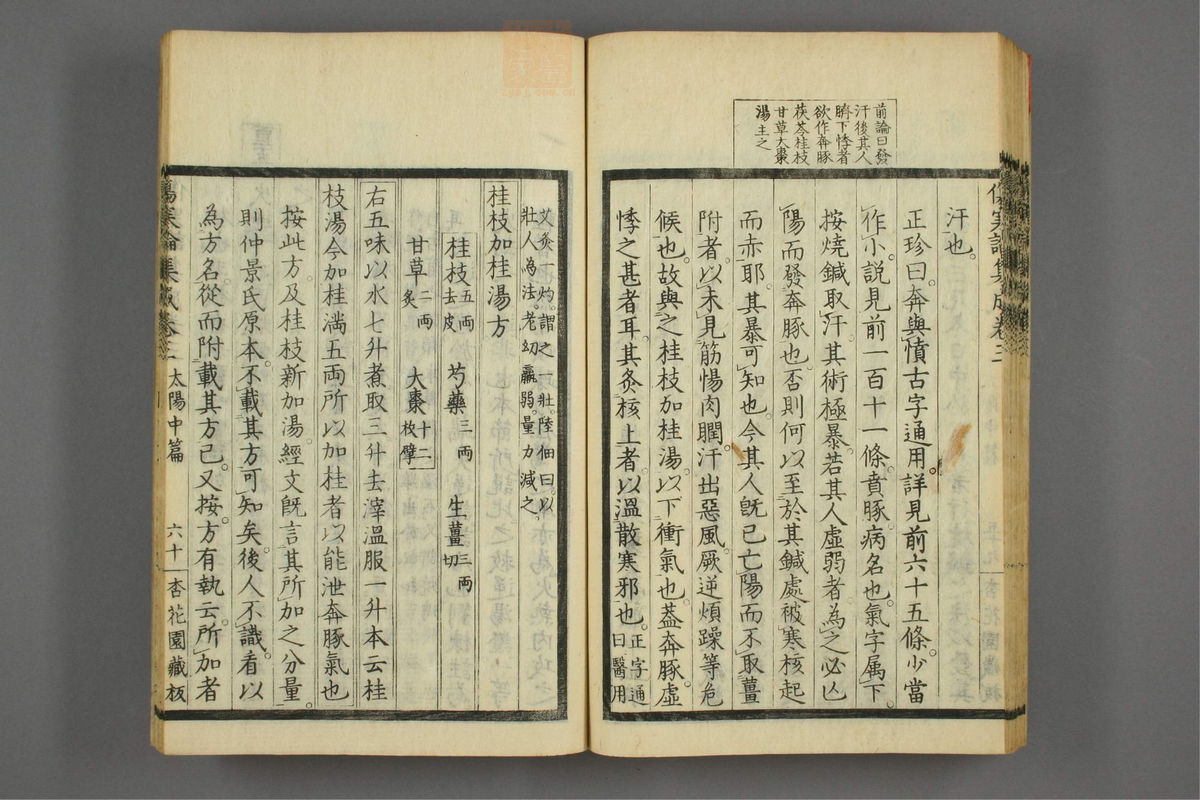 前論曰發
汗後其人
臍下悸者
欲作奔豚
茯苓桂枝
甘草大棗
湯主之
傷寒論集成卷三
汗也。
正珍曰。奔與憤古字通用。詳見前六十五條。少當
作小。說見前一百十一條。賁豚。病名也。氣字属下。
按燒鍼取汗。其術極暴。若其人虛弱者。為之必亡
陽而發奔豚也。否則何以至於其鍼處被寒核起
而赤耶。其暴可知也。今其人既已亡陽而不取薑
附者。以未見筋惕肉瞤。汗出惡風。厥逆煩躁等危
候也。故與之桂枝加桂湯。以下衝氣也。蓋奔豚。虛
悸之甚者耳。其灸核上者。以溫散寒邪也。正字通
曰醫用
艾灸一灼。謂之一壯。陸佃曰。以
壯人為法。老幼羸弱。量力減之
桂枝加桂湯方
桂枝五両去皮 芍藥三両 生薑三両切
甘草二両炙 大棗十二枚擘
右五味以水七升煮取三升去滓溫服一升本云桂
枝湯今加桂満五両所以加桂者以能泄奔豚氣也
按此方。及桂枝新加湯。經文既言其所加之分量。
則仲景氏原本。不載其方可知矣。後人不識。看以
為方名。從而附載其方已。又按。方有執云。所加者
傷寒論集成卷三 太陽中篇 六十 杏花園藏板